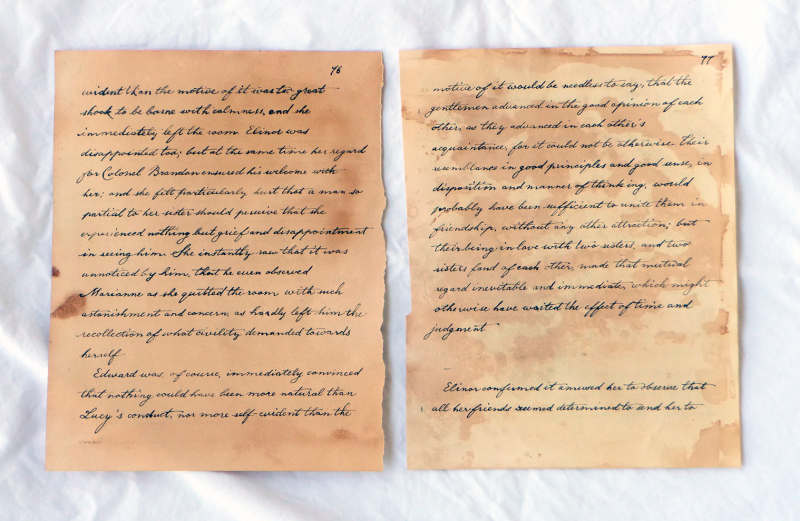 76
evident than the motive of it was too great
shock to be borne with calmness, and she
immediately left the room Elinor was
disappointed too; but at the same time her regard
for Colonel Brandon ensured his welcome with
her; and she felt particularly hurt that a man so
partial to her sister should perceive that she
experienced nothing but grief and disappointment
in seeing him. She instantly saw that it was
unnoticed by him, that he even observed
Marianne as she quitted the room with such
astonishment and concern, as hardly left him the
recollection of what civility demanded towards
herself.
Edward was, of course, immediately convinced
that nothing could have been more natural than
Lucy's conduct, nor more self-evident than the
77
motive of it would be needless to say, that the
gentlemen advanced in the good opinion of each
other, as they advanced in each other's
acquaintance, for it could not be otherwise. Their
resemblance in good principles and good sense, in
disposition and manner of thinking, would
probably have been sufficient to unite them in
friendship, without any other attraction; but
their being in love with two sisters, and two
sisters fond of each other, made that mutual
regard inevitable and immediate, which might
otherwise have waited the effect of time and
judgment
Elinor confirmed it amused her to observe that
all her friends seemed determined to and her to